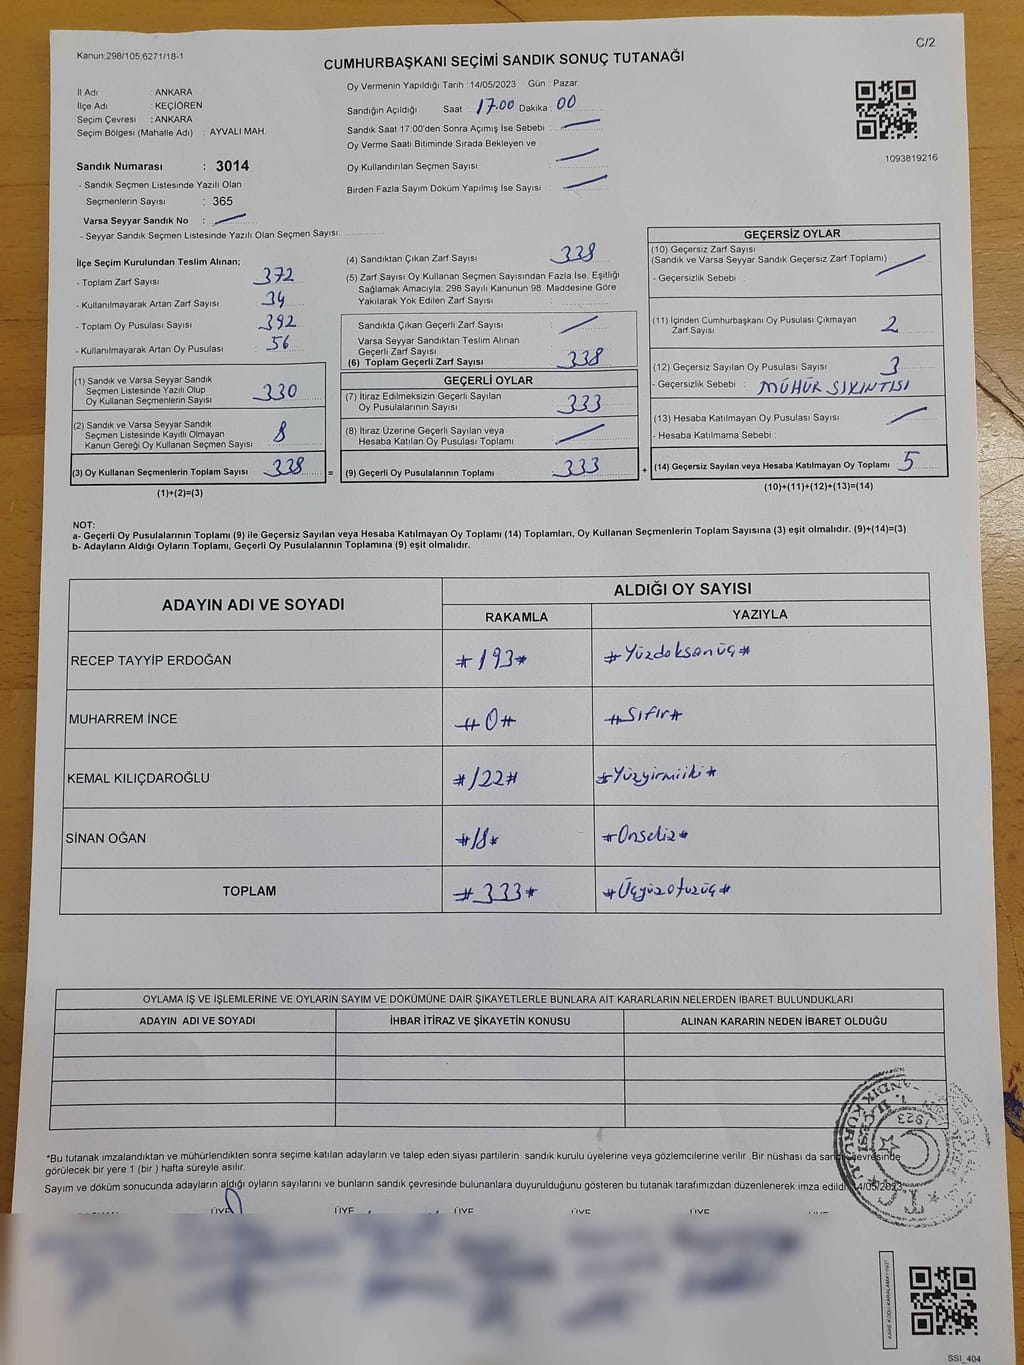 Kanun:298/105;6271/18-1
C/2
CUMHURBAŞKANI SEÇİMİ SANDIK SONUÇ TUTANAĞI
İl Adı : ANKARA
İlçe Adı : KEÇİÖREN
Seçim Çevresi : ANKARA
Seçim Bölgesi (Mahalle Adı) : AYVALI MAH.
Sandık Numarası : 3014
- Sandık Seçmen Listesinde Yazılı Olan
Seçmenlerin Sayısı : 365
Varsa Seyyar Sandık No :
- Seyyar Sandık Seçmen Listesinde Yazılı Olan Seçmen Sayısı:
Oy Vermenin Yapıldığı Tarih :14/05/2023 Gün : Pazar
Sandığın Açıldığı Saat : 17.00 Dakika : 00
Sandık Saat 17:00'den Sonra Açımış İse Sebebi :
Oy Verme Saati Bitiminde Sırada Bekleyen ve
Oy Kullandırılan Seçmen Sayısı :
Birden Fazla Sayım Döküm Yapılmış İse Sayısı :
1093819216
İlçe Seçim Kurulundan Teslim Alınan;
- Toplam Zarf Sayısı : 372
- Kullanılmayarak Artan Zarf Sayısı : 34
- Toplam Oy Pusulası Sayısı : 392
- Kullanılmayarak Artan Oy Pusulası : 56
(1) Sandık ve Varsa Seyyar Sandık
Seçmen Listesinde Yazılı Olup
Oy Kullanan Seçmenlerin Sayısı : 330
(2) Sandık ve Varsa Seyyar Sandık
Seçmen Listesinde Kayıtlı Olmayan
Kanun Gereği Oy Kullanan Seçmen Sayısı : 8
(3) Oy Kullanan Seçmenlerin Toplam Sayısı : 338
(1)+(2)=(3)
(4) Sandıktan Çıkan Zarf Sayısı : 338
(5) Zarf Sayısı Oy Kullanan Seçmen Sayısından Fazla İse, Eşitliği
Sağlamak Amacıyla; 298 Sayılı Kanunun 98. Maddesine Göre
Yakılarak Yok Edilen Zarf Sayısı :
Sandıkta Çıkan Geçerli Zarf Sayısı :
Varsa Seyyar Sandıktan Teslim Alınan
Geçerli Zarf Sayısı :
(6) Toplam Geçerli Zarf Sayısı : 338
GEÇERLİ OYLAR
(7) İtiraz Edilmeksizin Geçerli Sayılan
Oy Pusulalarının Sayısı : 333
(8) İtiraz Üzerine Geçerli Sayılan veya
Hesaba Katılan Oy Pusulası Toplamı :
= (9) Geçerli Oy Pusulalarının Toplamı : 333
GEÇERSİZ OYLAR
(10) Geçersiz Zarf Sayısı
(Sandık ve Varsa Seyyar Sandık Geçersiz Zarf Toplamı) :
- Geçersizlik Sebebi :
(11) İçinden Cumhurbaşkanı Oy Pusulası Çıkmayan
Zarf Sayısı : 2
(12) Geçersiz Sayılan Oy Pusulası Sayısı : 3
- Geçersizlik Sebebi : MÜHÜR SIKINTISI
(13) Hesaba Katılmayan Oy Pusulası Sayısı :
- Hesaba Katılmama Sebebi :
+ (14) Geçersiz Sayılan veya Hesaba Katılmayan Oy Toplamı : 5
(10)+(11)+(12)+(13)=(14)
NOT:
a- Geçerli Oy Pusulalarının Toplamı (9) ile Geçersiz Sayılan veya Hesaba Katılmayan Oy Toplamı (14) Toplamları, Oy Kullanan Seçmenlerin Toplam Sayısına (3) eşit olmalıdır. (9)+(14)=(3)
b- Adayların Aldığı Oyların Toplamı, Geçerli Oy Pusulalarının Toplamına (9) eşit olmalıdır.
ADAYIN ADI VE SOYADI
ALDIĞI OY SAYISI
RAKAMLA YAZIYLA
RECEP TAYYİP ERDOĞAN #193# #Yüzdoksanüç#
MUHARREM İNCE #0# #Sıfır#
KEMAL KILIÇDAROĞLU #122# #Yüzyirmiiki#
SİNAN OĞAN #18# #Onsekiz#
TOPLAM #333# #Üçyüzotuzüç#
OYLAMA İŞ VE İŞLEMLERİNE VE OYLARIN SAYIM VE DÖKÜMÜNE DAİR ŞİKAYETLERLE BUNLARA AİT KARARLARIN NELERDEN İBARET BULUNDUKLARI
ADAYIN ADI VE SOYADI İHBAR İTİRAZ VE ŞİKAYETİN KONUSU ALINAN KARARIN NEDEN İBARET OLDUĞU
*Bu tutanak imzalandıktan ve mühürlendikten sonra seçime katılan adayların ve talep eden siyası partilerin sandık kurulu üyelerine veya gözlemcilerine verilir .Bir nüshası da sandık çevresinde
görülecek bir yere 1 (bir ) hafta süreyle asılır.
Sayım ve döküm sonucunda adayların aldığı oyların sayılarını ve bunların sandık çevresinde bulunanlara duyurulduğunu gösteren bu tutanak tarafımızdan düzenlenerek imza edildi. 14/05/2023
ÜYE ÜYE ÜYE ÜYE ÜYE ÜYE
T.C.
1923
KARE KODU KARALAMAYINIZ!
SSI_404